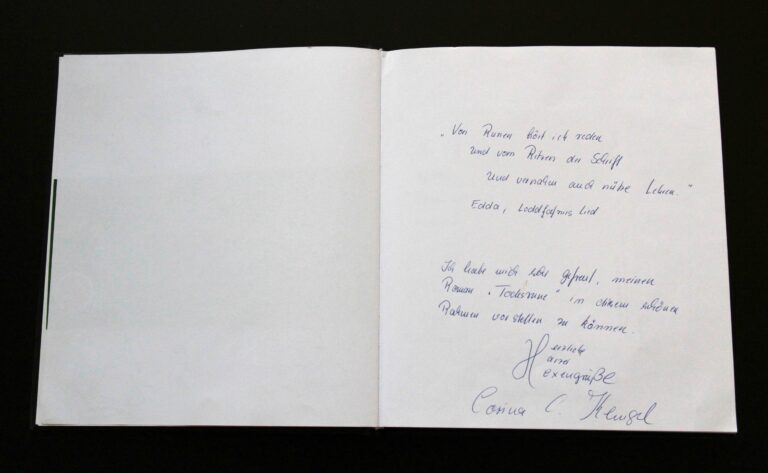 „Von Runen hört ich reden
und vom Ritzen der Schrift
Und vernahm auch nütze Lehren."
Edda, Loddfafnis Lied
Ich habe mich sehr gefreut, meinen
Roman „Todesrune" in diesem schönen
Rahmen vorstellen zu können.
Herzliche
Harzer
Hexengrüße
Corina C. Klengel